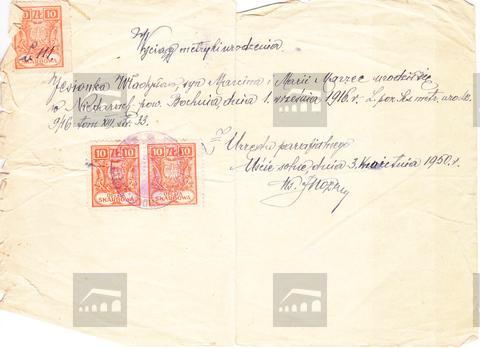 10 ZŁ 10
111
SKARBOWA
Wyciąg metryki urodzenia.
Jesionka Władysław, syn Marcina i Marii Marzec urodził się
w Niedarach pow. Bochnia, dnia 1. września 1916 r. L. por. Ks. metr. urodz.
9/16 tom XII. str. 33.
Z Urzędu parafialnego
Uście solne, dnia 3. kwietnia 1950 r.
Ks.
10 ZŁ 10
10 ZŁ 10
OPŁATA
SKARBOWA
OPŁATA
SKARBOWA